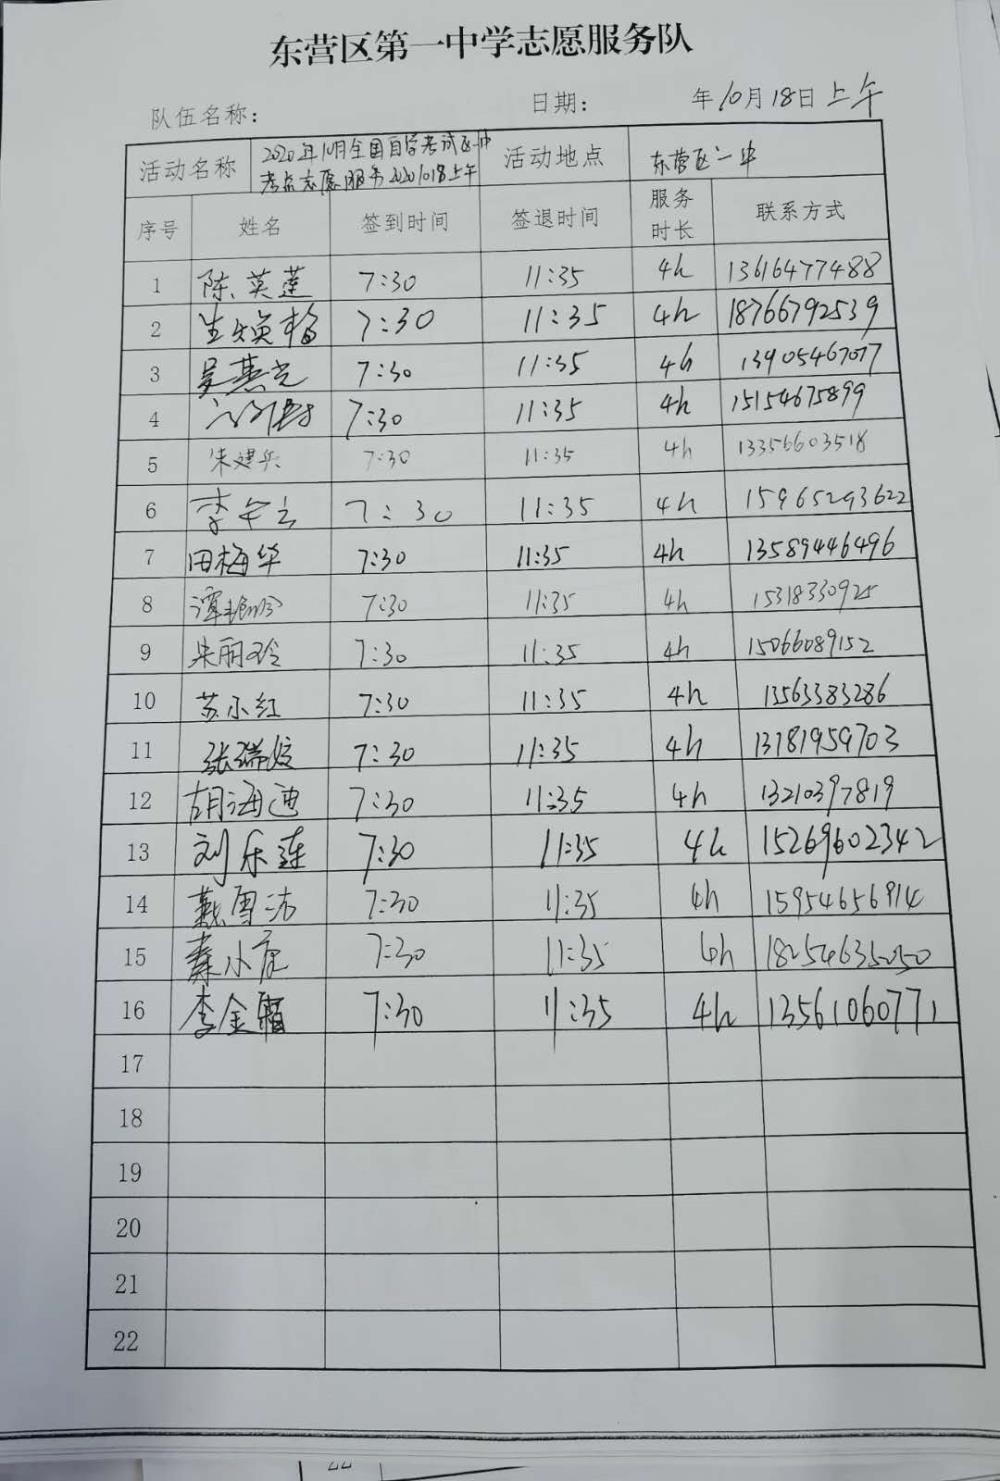 东营区第一中学志愿服务队
队伍名称: 日期: 年10月18日上午
活动名称 2020年10月全国自学考试区一中 活动地点 东营区一中
考点志愿服务20201018上午
序号 姓名 签到时间 签退时间 服务时长 联系方式
1 陈英莲 7:30 11:35 4h 13616477488
2 生焕梅 7:30 11:35 4h 18766792539
3 吴燕 7:30 11:35 4h 13905467077
4 7:30 11:35 4h 15154675899
5 朱建兵 7:30 11:35 4h 13356603518
6 李 7:30 11:35 4h 15965293622
7 田梅华 7:30 11:35 4h 13589446496
8 谭 7:30 11:35 4h 15318330925
9 朱丽玲 7:30 11:35 4h 15066089152
10 苏小红 7:30 11:35 4h 13563383286
11 张瑞 7:30 11:35 4h 13781959703
12 胡海迪 7:30 11:35 4h 13210397819
13 刘乐莲 7:30 11:35 4h 15269602342
14 戴雪洁 7:30 11:35 4h 15954656914
15 秦小 7:30 11:35 4h 18254635050
16 李金 7:30 11:35 4h 13561060771
17
18
19
20
21
22
22